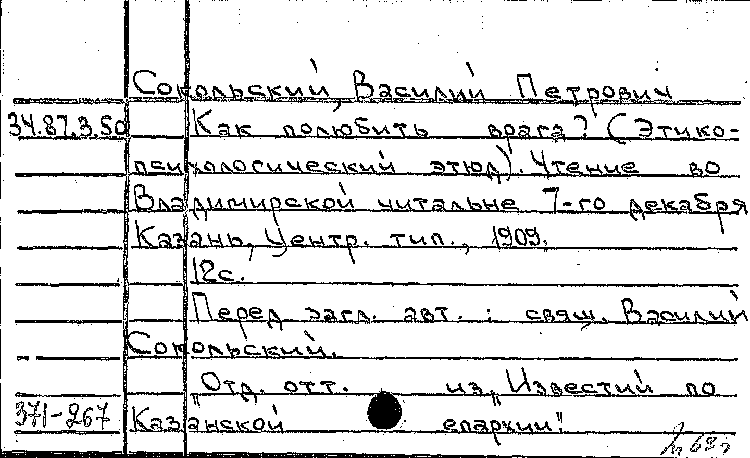 Сокольский, Василий Петрович
34.87.3.50 Как полюбить врага? (Этико-
психологический этюд). Чтение во
Владимирской читальне 7-го декабря
Казань, Центр. тип., 1909.
12с.
Перед загл. авт.: свящ. Василий
Сокольский.
"Отд. отт. из "Известий по
371-267 Казанской епархии".